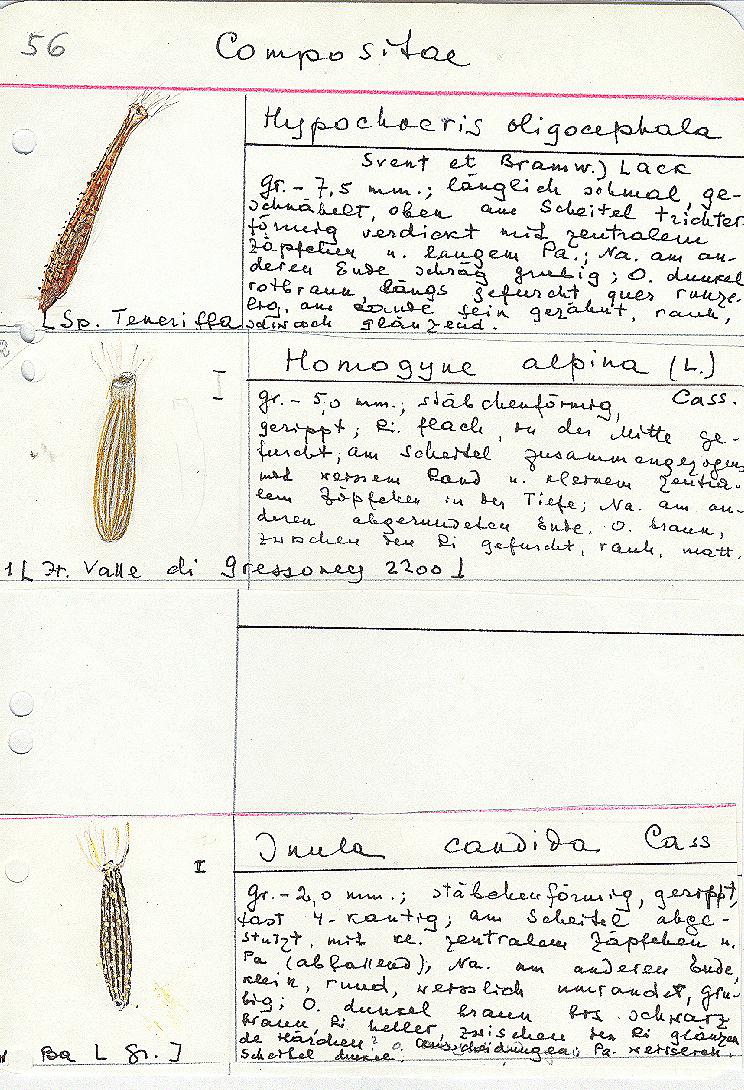 56 Compositae
Hypochoeris oligocephala
Svent et Bramw.) Lack
gr. - 7,5 mm.; länglich schmal, ge-
schnäbelt, oben am Scheitel trichter-
förmig verdickt mit zentralem
Zäpfchen u. langem Pa.; Na. am an-
deren Ende schräg grubig; O. dunkel
rotbraun längs gefurcht quer runze-
lig, am Rande fein gezähnt, rauh,
schwach glänzend.
[ Sp. Teneriffa
I
Homogyne alpina (L.)
Cass.
gr. - 5,0 mm.; stäbchenförmig,
gerippt; Ri. flach, in der Mitte ge-
furcht; am Scheitel zusammengezogen
mit weissem Rand u. kleinem zentra-
lem Zäpfchen in der Tiefe; Na. am an-
deren abgerundeten Ende. O. braun,
zwischen den Ri gefurcht, rauh, matt.
1 [ It. Valle di Gressoney 2200 ]
I
Inula candida Cass
gr. - 2,0 mm.; stäbchenförmig, gerippt,
fast 4-kantig; am Scheitel abge-
stutzt, mit kl. zentralem Zäpfchen u.
Pa (abfallend); Na. am anderen Ende,
klein, rund, weisslich umrandet, gru-
big; O. dunkel braun bis schwarz
braun, Ri heller, zwischen den Ri glänzen
de Härchen? o. Ausscheidungen; Pa. weisslich.
Scheitel dunkel.
Ba [ Gr. ]